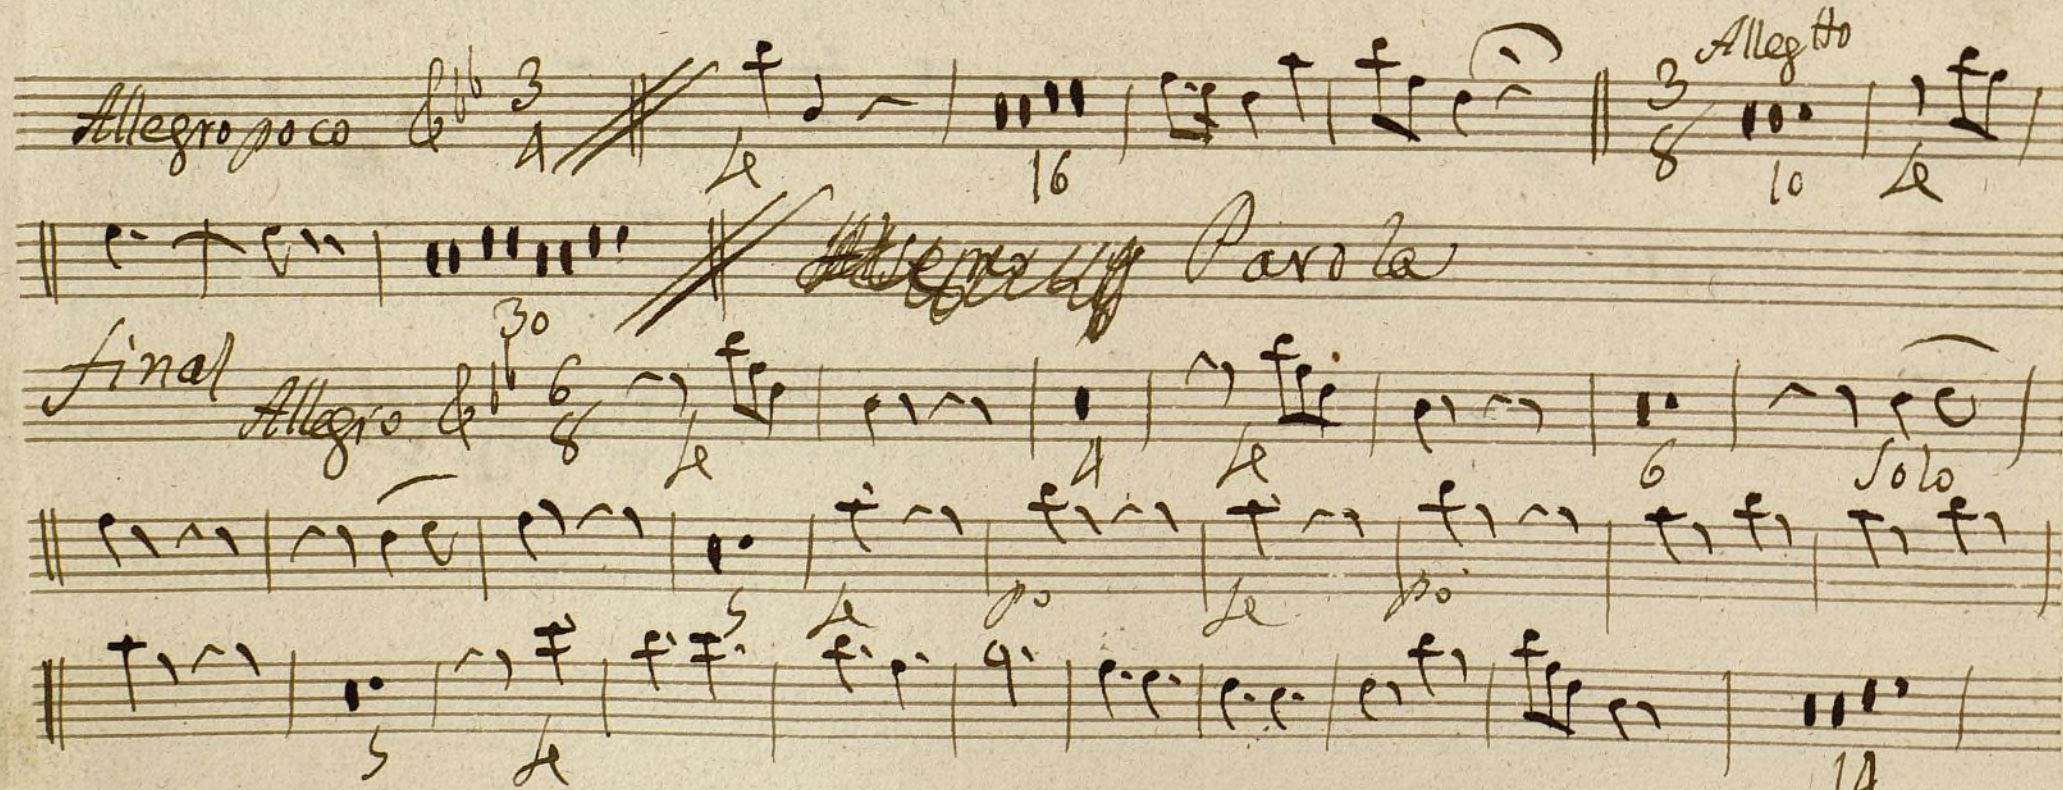 Allegro poco 3 4 Le 16 3 8 Allegtto 10 Le
30 Parola
final Allegro 6 8 Le 4 Le 6 Solo
5 Le po Le po
5 Le 14